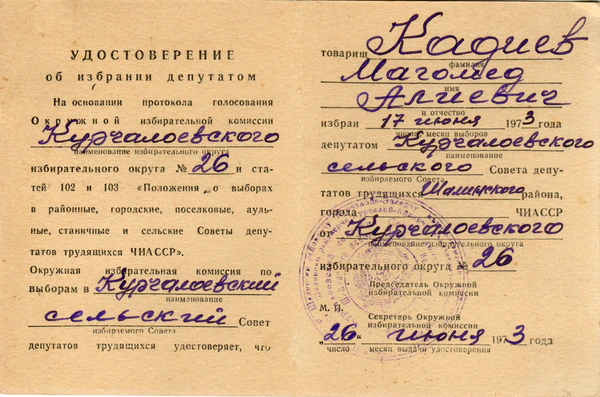 УДОСТОВЕРЕНИЕ
об избрании депутатом
На основании протокола голосования
Окружной избирательной комиссии
Курчалоевского
наименование избирательного округа
избирательного округа № 26 и ста-
тей 102 и 103 «Положения о выборах
в районные, городские, поселковые, ауль-
ные, станичные и сельские Советы депу-
татов трудящихся ЧИАССР».
Окружная избирательная комиссия по
выборам в Курчалоевский
наименование
сельский Совет
избираемого Совета
депутатов трудящихся удостоверяет, что
товарищ Кадиев
фамилия
Магомед
имя
Алиевич
и отчество
избран 17 июня 1973 года
число, месяц выборов
депутатом Курчалоевского
наименование
сельского Совета депу-
избираемого Совета
татов трудящихся Шалинского района,
города ЧИАССР
от Курчалоевского
наименование избирательного округа
избирательного округа № 26
Председатель Окружной
избирательной комиссии
М. П.
Секретарь Окружной
избирательной комиссии
„26“ июня 1973 года
число месяц выдачи удостоверения